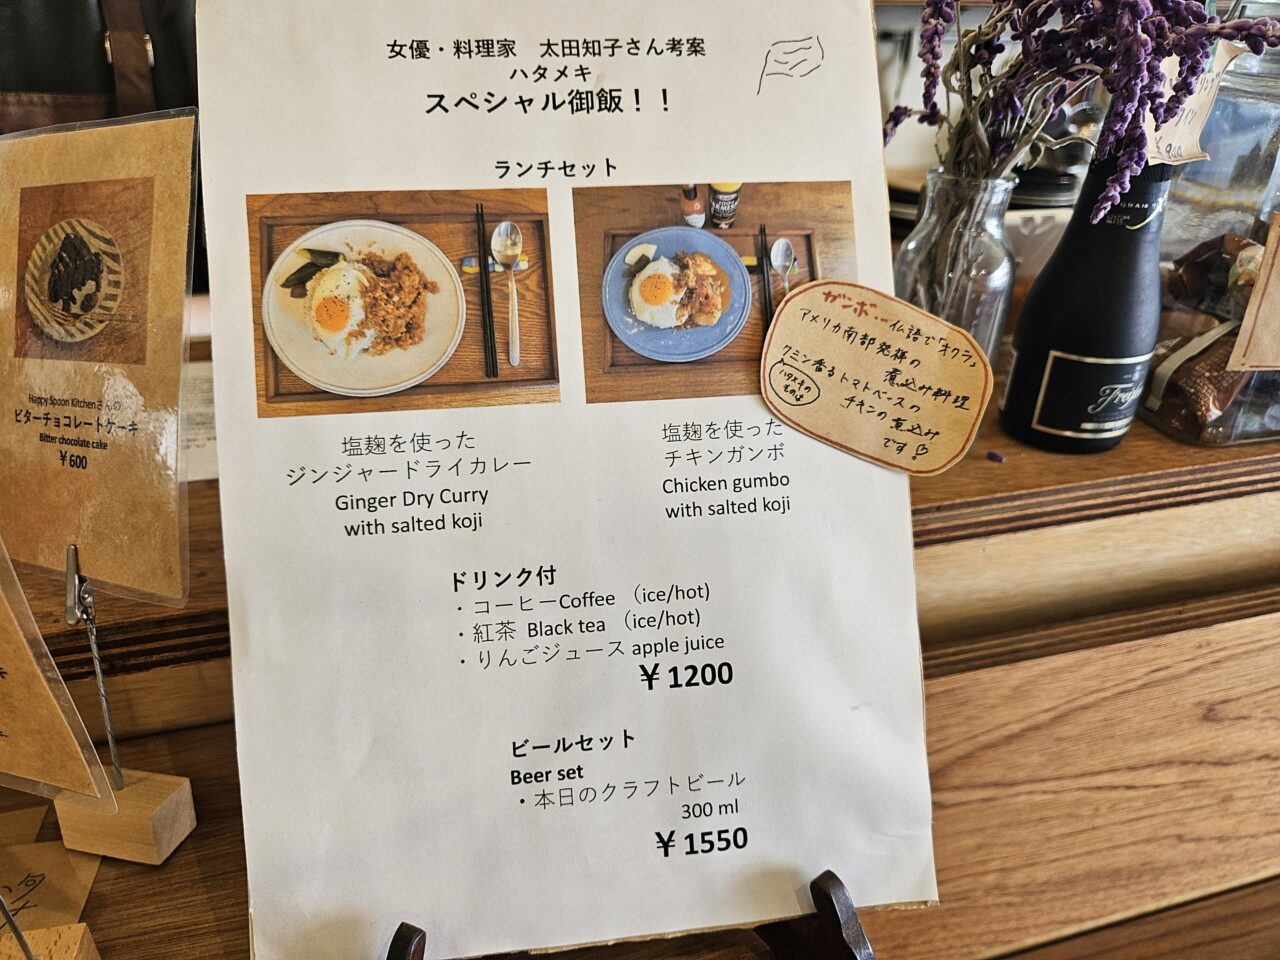 女優・料理家　太田知子さん考案
ハタメキ
スペシャル御飯！！
ランチセット
塩麹を使った
ジンジャードライカレー
Ginger Dry Curry
with salted koji
塩麹を使った
チキンガンボ
Chicken gumbo
with salted koji
ガンボ…仏語で「オクラ」
アメリカ南部発祥の
煮込み料理
ハタメキの
そのは
クミン香るトマトベースの
チキンの煮込み
です！
ドリンク付
・コーヒーCoffee （ice/hot)
・紅茶 Black tea （ice/hot)
・りんごジュース apple juice
￥1200
ビールセット
Beer set
・本日のクラフトビール
300 ml
￥1550
Happy Spoon Kitchenさんの
ビターチョコレートケーキ
Bitter chocolate cake
￥600